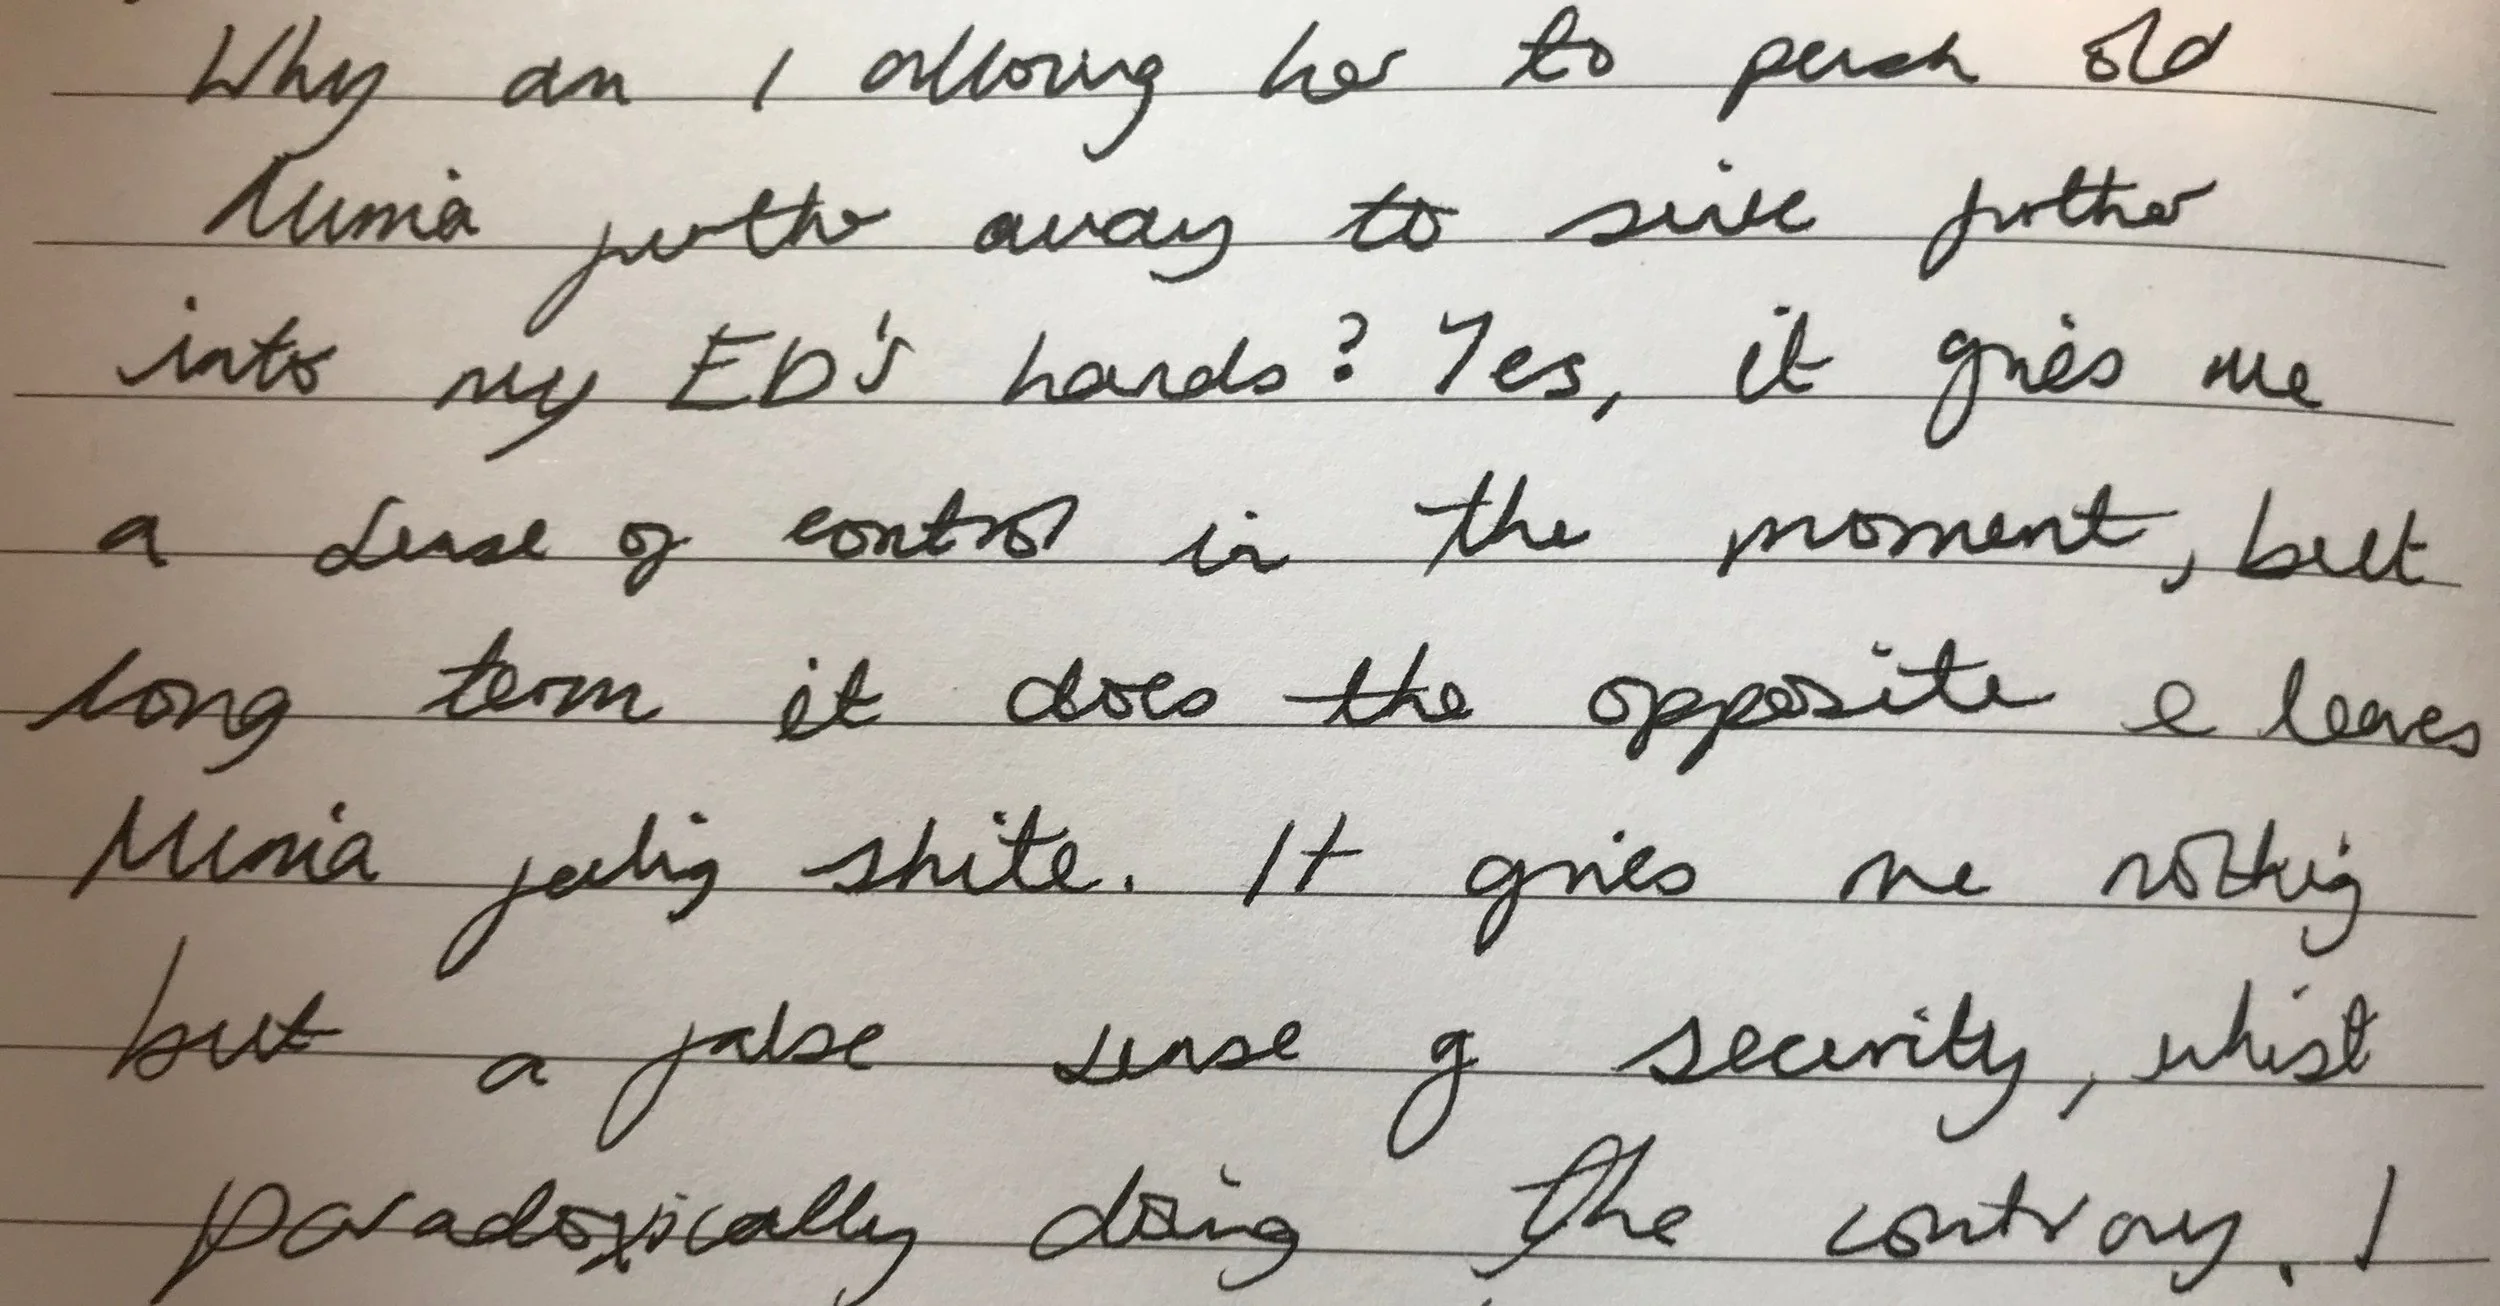 Why am I allowing her to push old
Mimia further away to sink further
into my ED's hands? Yes, it gives me
a sense of control in the moment, but
long term it does the opposite & leaves
Mimia feeling shite. It gives me nothing
but a false sense of security, whist
paradoxically doing the contrary. I